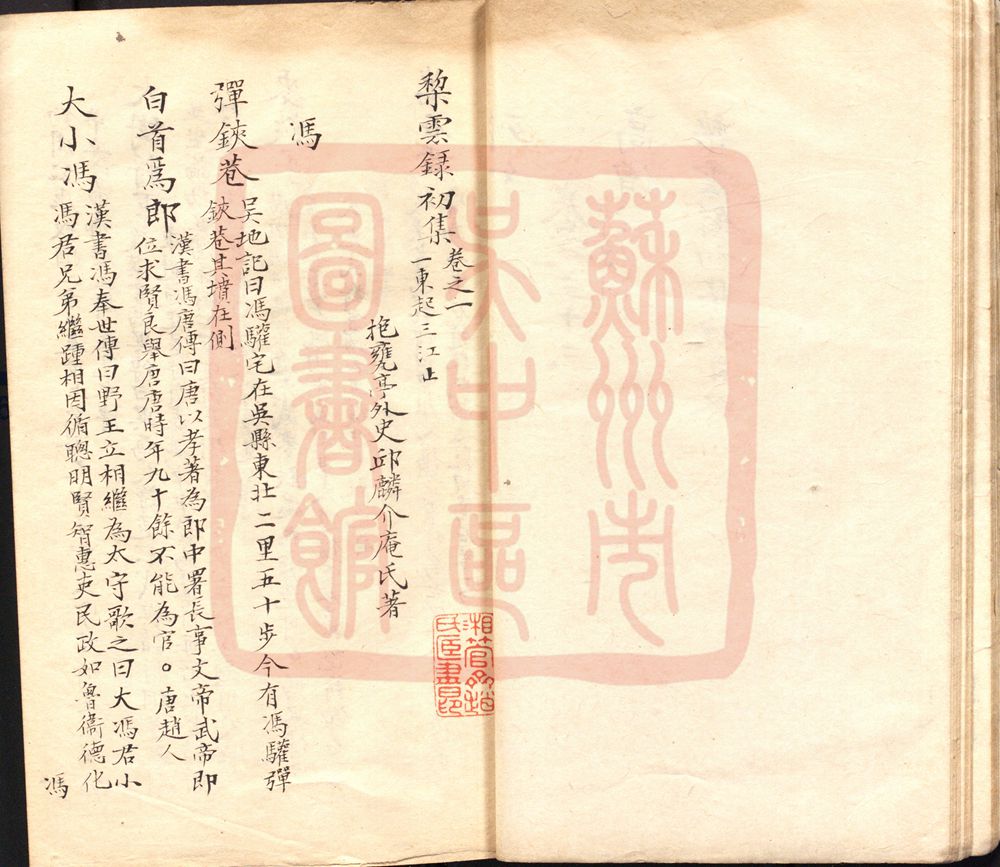 棃雲録初集卷之一
一東起三江止
抱甕亭外史邱麟介庵氏著
馮
彈鋏巷
吳地記曰馮驩宅在吳縣東北二里五十步今有馮驩彈
鋏巷其墳在側
白首爲郎
漢書馮唐傳曰唐以孝著為郎中署長事文帝武帝即
位求賢良舉唐唐時年九十餘不能為官。唐趙人
大小馮
漢書馮奉世傳曰野王立相繼為太守歌之曰大馮君小
馮君兄弟繼踵相因循聰明賢智惠吏民政如魯衛德化
馮
蘇州市
吳中區
圖書館